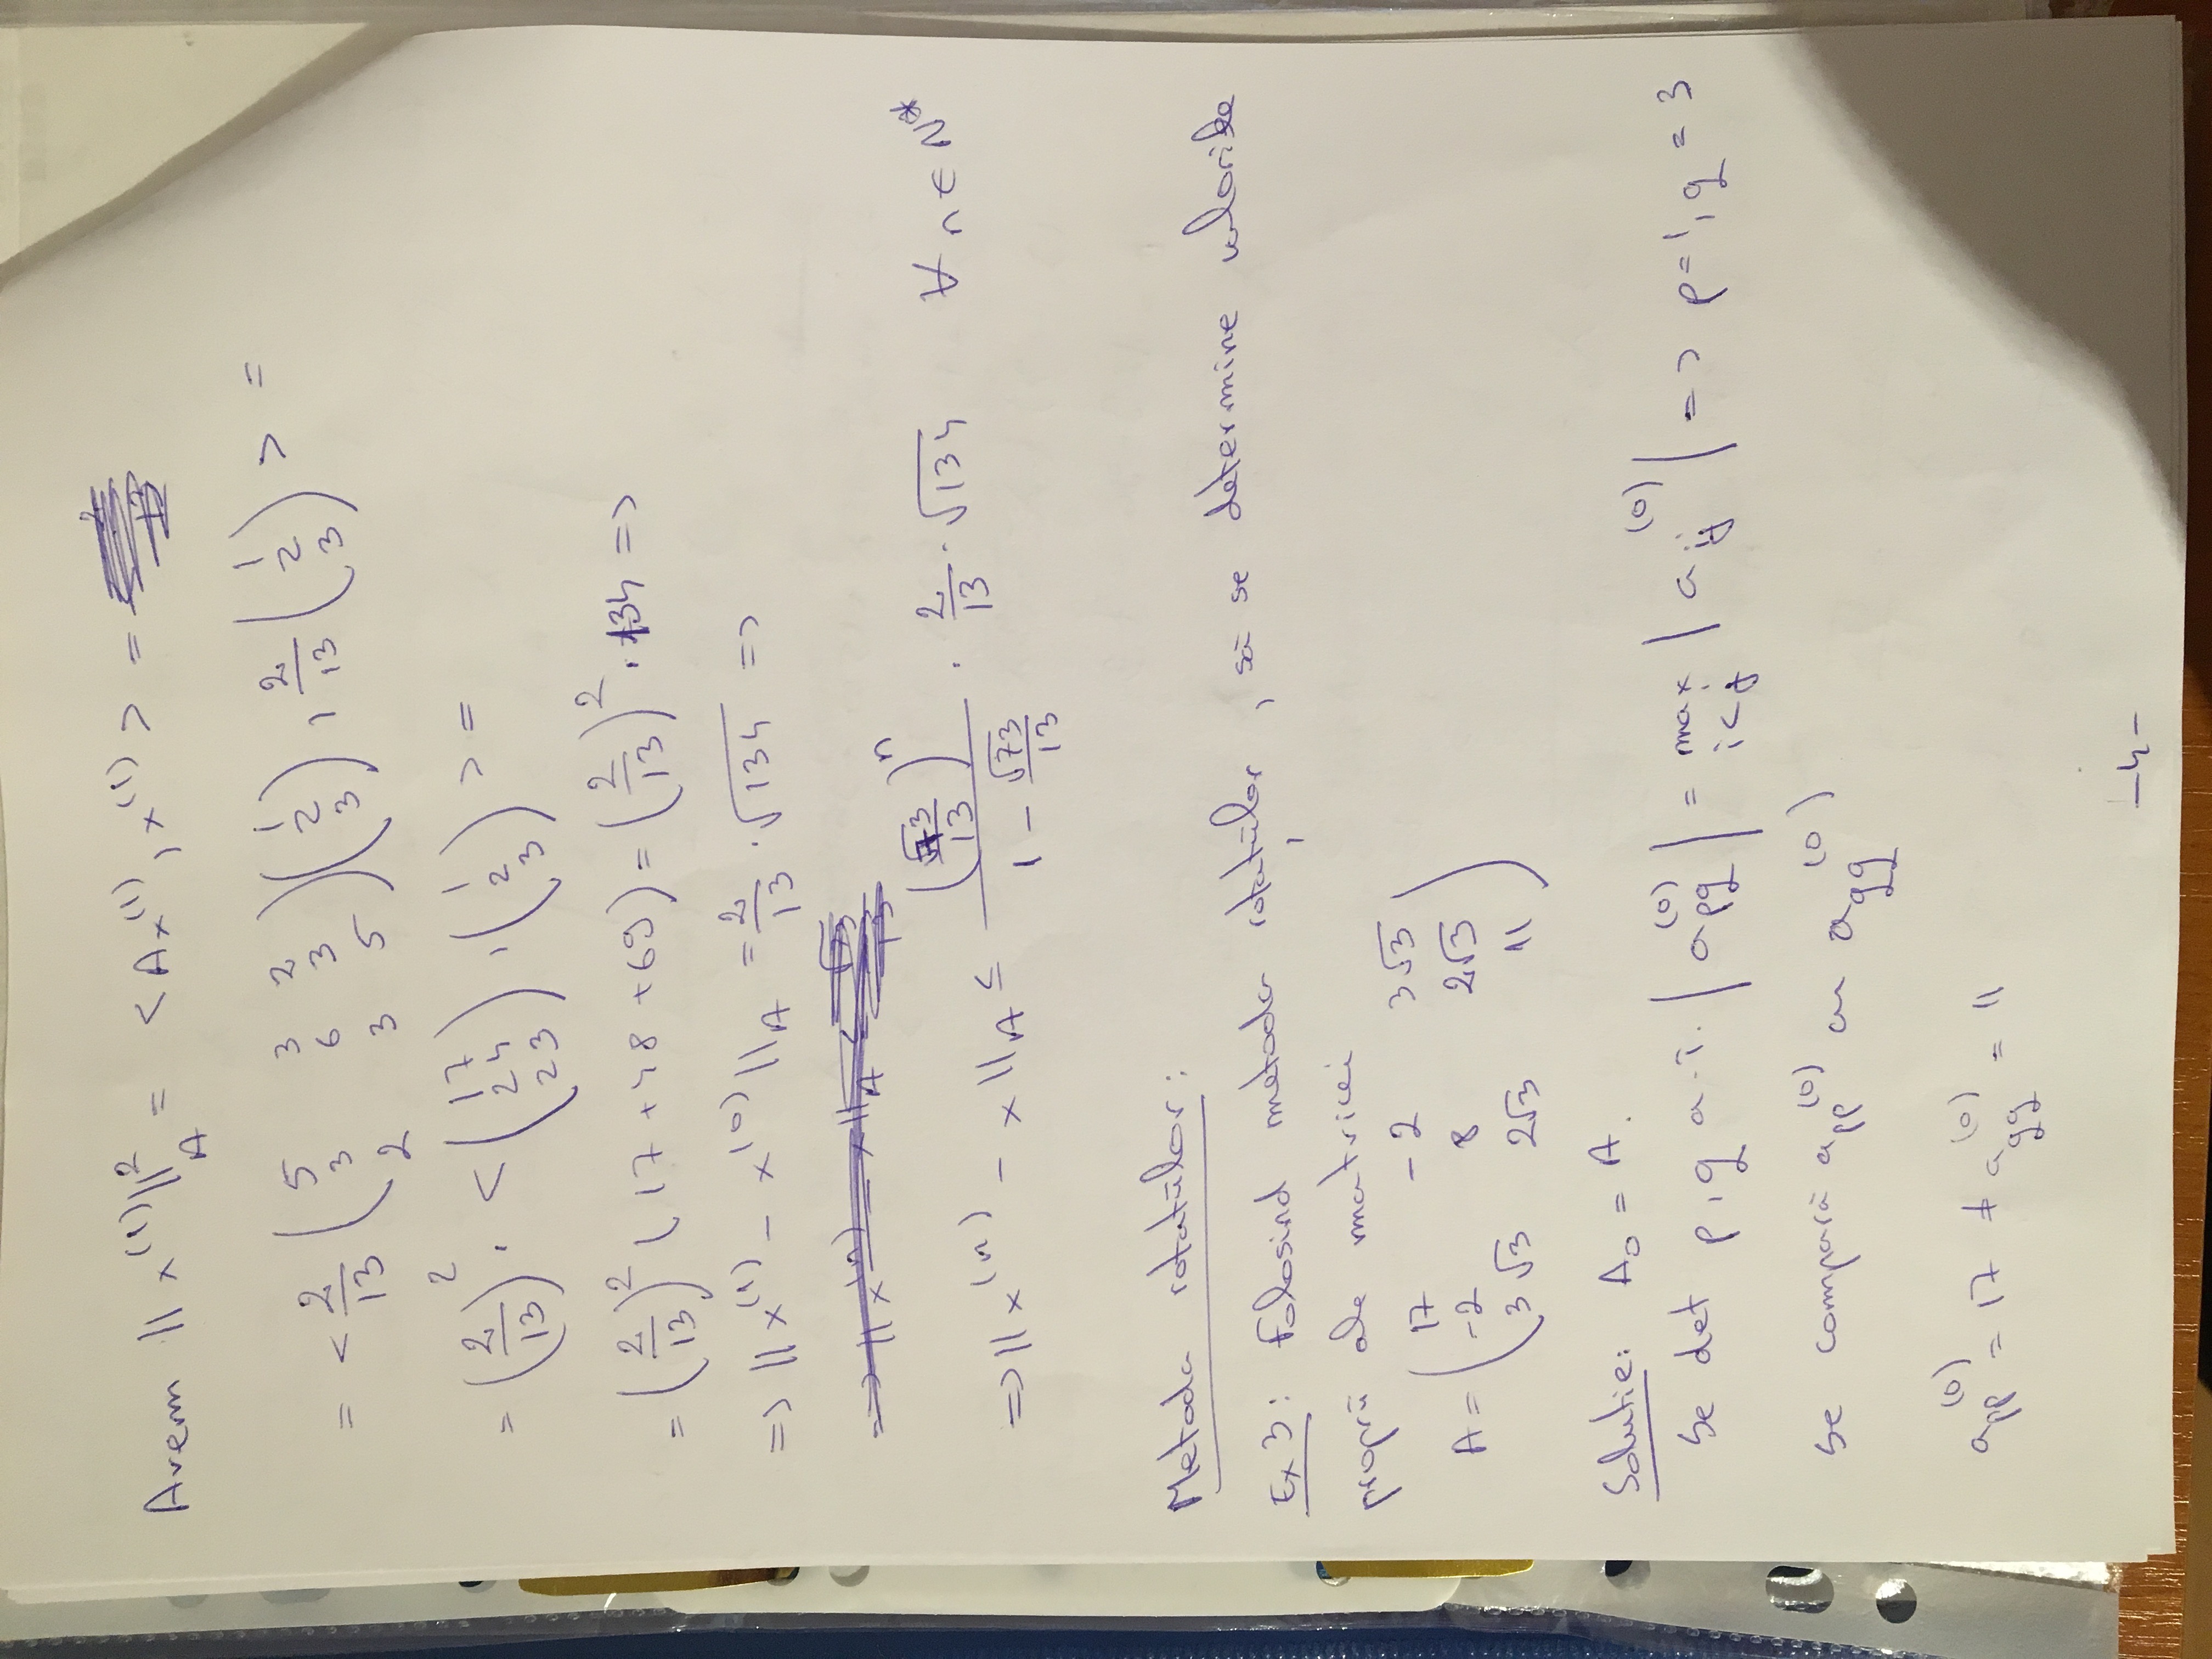 Avem ||x^(1)||²_A = <Ax^(1), x^(1)> =
= <2/13 (5 3 2; 3 6 3; 2 3 5)(1; 2; 3), 2/13 (1; 2; 3)> =
= (2/13)² · <(17; 24; 23), (1; 2; 3)> =
= (2/13)² (17 + 48 + 69) = (2/13)² · 134 =>
=> ||x^(1) - x^(0)||_A = 2/13 · √134 =>
=> ||x^(n) - x||_A ≤
=> ||x^(n) - x||_A ≤ (√73/13)^n / (1 - √73/13) · 2/13 · √134 ∀ n ∈ N*
Metoda rotațiilor:
Ex 3: Folosind metoda rotațiilor, să se determine valorile
proprii ale matricei
A = (17 -2 3√3; -2 8 2√3; 3√3 2√3 11)
Soluție: A₀ = A.
Se det p, q a.î. |a_pq^(0)| = max_{i<j} |a_ij^(0)| => p=1, q=3
Se compară a_pp^(0) cu a_qq^(0)
a_pp^(0) = 17 ≠ a_qq^(0) = 11
-4-